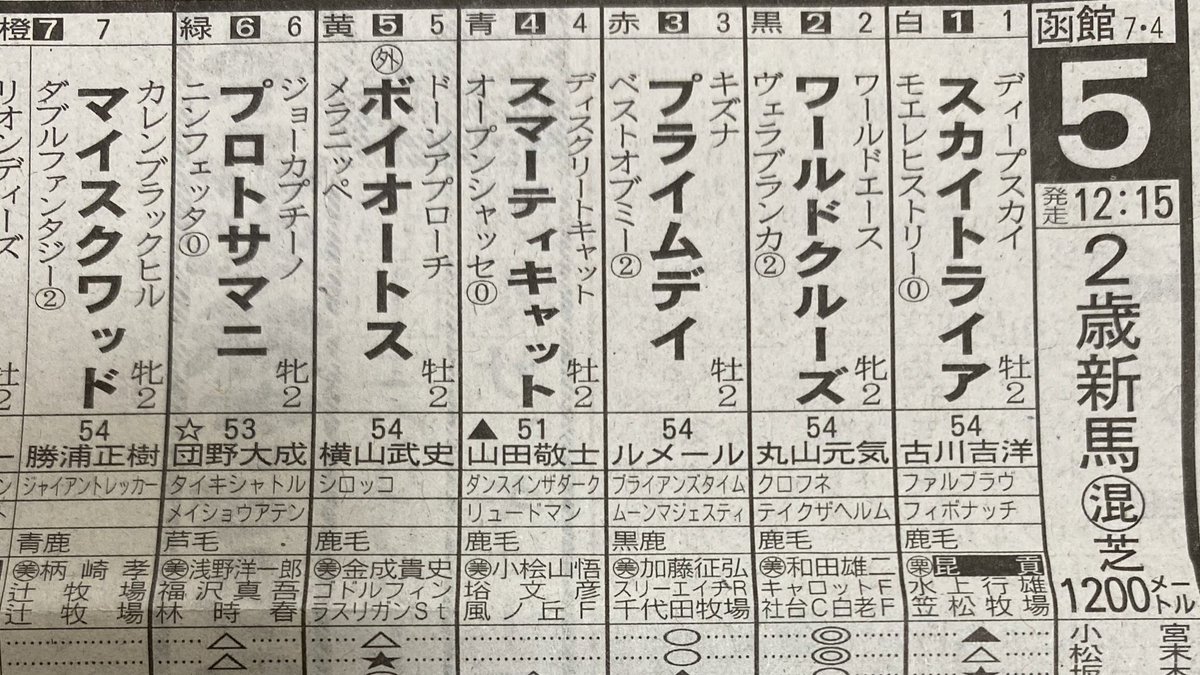 函館 7・4
5
発走 12:15
2歳新馬
混 芝
1200メートル
小松坂
宮末本
白 1 1
ディープスカイ
スカイトライア
モエレヒストリー⓪
牡2
54
古川吉洋
ファルブラヴ
フィボナッチ
鹿毛
栗 昆貢
水上行雄
笠松牧場
▲
△
黒 2 2
ワールドエース
ワールドクルーズ
ヴェラブランカ②
牝2
54
丸山元気
クロフネ
テイクザヘルム
鹿毛
美 和田雄二
キャロットF
社台C白老F
◎
◎
赤 3 3
キズナ
プライムデイ
ベストオブミー②
牡2
54
ルメール
ブライアンズタイム
ムーンマジェスティ
黒鹿
美 加藤征弘
スリーエイチR
千代田牧場
○
○
青 4 4
ディスクリートキャット
スマーティキャット
オープンシャッセ⓪
牡2
▲ 51
山田敬士
ダンスインザダーク
リュードマン
鹿毛
美 小桧山悟
塔文彦
風ノ丘F
黄 5 5
外
ドーンアプローチ
ボイオートス
メラニッペ
牡2
54
横山武史
シロッコ
鹿毛
美 金成貴史
ゴドルフィン
ラスリガンSt
△
★
緑 6 6
ジョーカプチーノ
プロトサマニ
ニンフェッタ⓪
牝2
☆ 53
団野大成
タイキシャトル
メイショウアテン
芦毛
美 浅野洋一郎
福沢真吾
林時春
△
△
橙 7 7
カレンブラックヒル
マイスクワッド
ダブルファンタジー②
牝2
54
勝浦正樹
ジャイアントレッカー
青鹿
美 柄崎孝
辻牧場
辻牧場
リオンディーズ
牡2